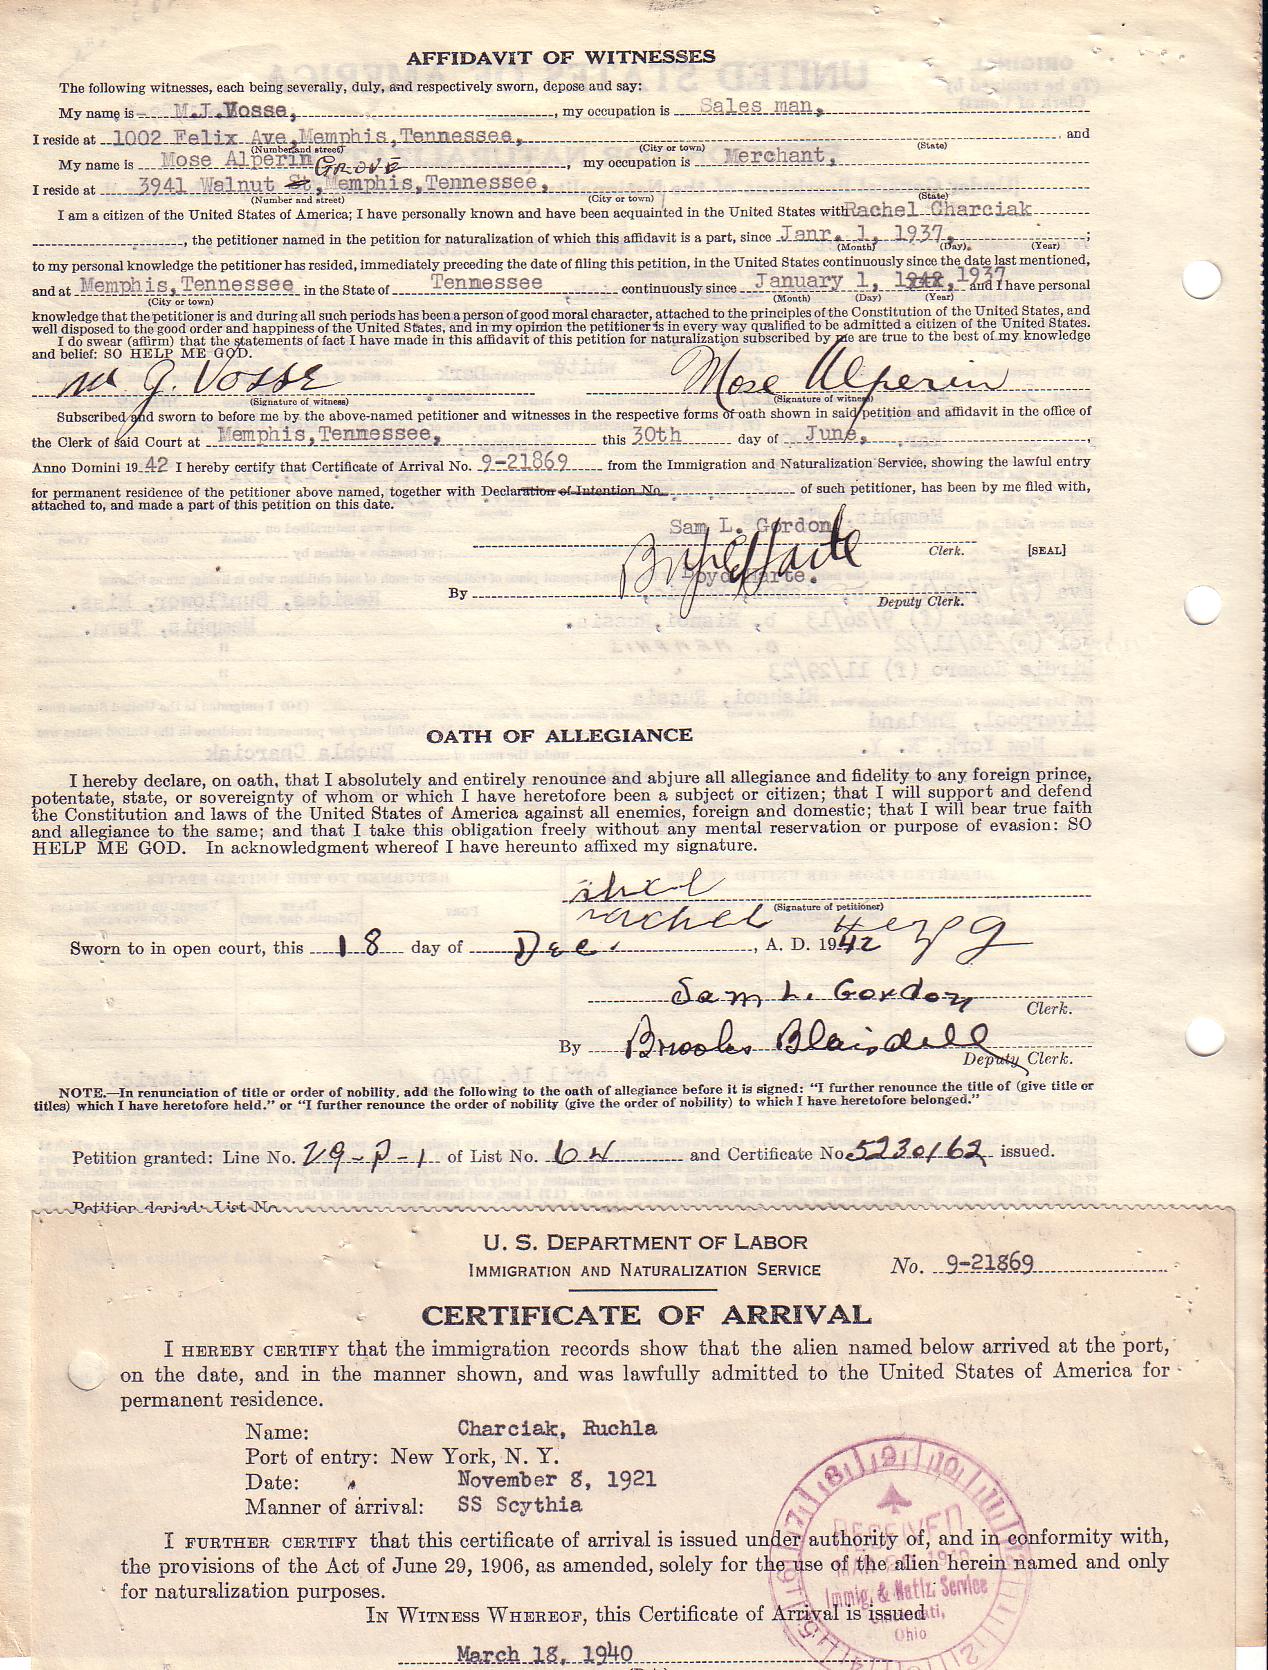 AFFIDAVIT OF WITNESSES
The following witnesses, each being severally, duly, and respectively sworn, depose and say:
My name is M.J.Vosse, my occupation is Sales man,
I reside at 1002 Felix Ave,Memphis,Tennessee, and
(Number and street) (City or town) (State)
My name is Mose Alperin, my occupation is Merchant,
GROVE
I reside at 3941 Walnut St,Memphis,Tennessee,
(Number and street) (City or town) (State)
I am a citizen of the United States of America; I have personally known and have been acquainted in the United States with Rachel Charciak
, the petitioner named in the petition for naturalization of which this affidavit is a part, since Janr. 1, 1937,;
(Month) (Day) (Year)
to my personal knowledge the petitioner has resided, immediately preceding the date of filing this petition, in the United States continuously since the date last mentioned,
and at Memphis,Tennessee in the State of Tennessee continuously since January 1, 1942, 1937 and I have personal
(City or town) (Month) (Day) (Year)
knowledge that the petitioner is and during all such periods has been a person of good moral character, attached to the principles of the Constitution of the United States, and
well disposed to the good order and happiness of the United States, and in my opinion the petitioner is in every way qualified to be admitted a citizen of the United States.
I do swear (affirm) that the statements of fact I have made in this affidavit of this petition for naturalization subscribed by me are true to the best of my knowledge
and belief: SO HELP ME GOD.
M J. Vosse Mose Alperin
(Signature of witness) (Signature of witness)
Subscribed and sworn to before me by the above-named petitioner and witnesses in the respective forms of oath shown in said petition and affidavit in the office of
the Clerk of said Court at Memphis,Tennessee, this 30th day of June,,
Anno Domini 1942 I hereby certify that Certificate of Arrival No. 9-21869 from the Immigration and Naturalization Service, showing the lawful entry
for permanent residence of the petitioner above named, together with Declaration of Intention No. of such petitioner, has been by me filed with,
attached to, and made a part of this petition on this date.
Sam L. Gordon
Clerk. [SEAL]
By
Deputy Clerk.
OATH OF ALLEGIANCE
I hereby declare, on oath, that I absolutely and entirely renounce and abjure all allegiance and fidelity to any foreign prince,
potentate, state, or sovereignty of whom or which I have heretofore been a subject or citizen; that I will support and defend
the Constitution and laws of the United States of America against all enemies, foreign and domestic; that I will bear true faith
and allegiance to the same; and that I take this obligation freely without any mental reservation or purpose of evasion: SO
HELP ME GOD. In acknowledgment whereof I have hereunto affixed my signature.
(Signature of petitioner)
rachel
Sworn to in open court, this 18 day of Dec., A. D. 1942
Sam L. Gordon
Clerk.
By Brooks Blaisdell
Deputy Clerk.
NOTE.—In renunciation of title or order of nobility, add the following to the oath of allegiance before it is signed: "I further renounce the title of (give title or
titles) which I have heretofore held." or "I further renounce the order of nobility (give the order of nobility) to which I have heretofore belonged."
Petition granted: Line No. 29-P-1 of List No. 64 and Certificate No. 5230162 issued.
Petition denied: List No.
U. S. DEPARTMENT OF LABOR
IMMIGRATION AND NATURALIZATION SERVICE No. 9-21869
CERTIFICATE OF ARRIVAL
I HEREBY CERTIFY that the immigration records show that the alien named below arrived at the port,
on the date, and in the manner shown, and was lawfully admitted to the United States of America for
permanent residence.
Name: Charciak, Ruchla
Port of entry: New York, N. Y.
Date: November 8, 1921
Manner of arrival: SS Scythia
I FURTHER CERTIFY that this certificate of arrival is issued under authority of, and in conformity with,
the provisions of the Act of June 29, 1906, as amended, solely for the use of the alien herein named and only
for naturalization purposes.
IN WITNESS WHEREOF, this Certificate of Arrival is issued
March 18, 1940
RECEIVED
Immig. & Natlz. Service
Cincinnati,
Ohio